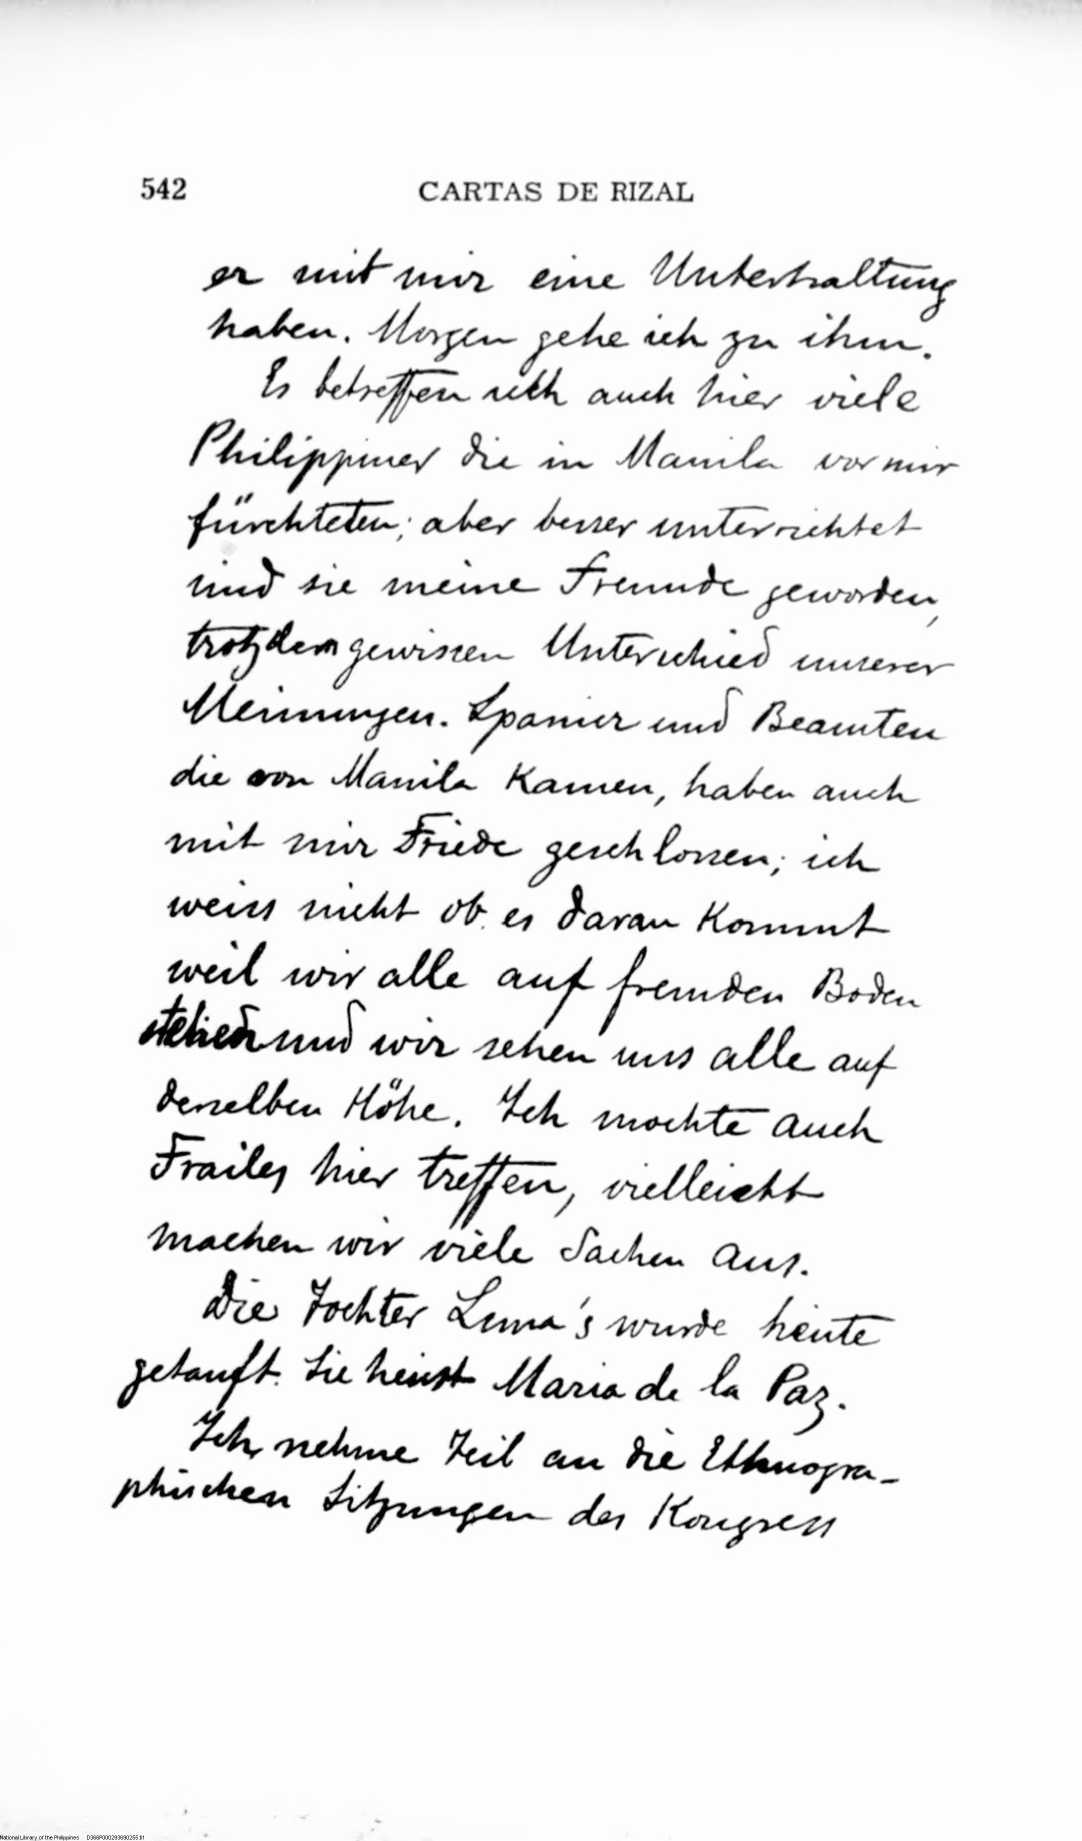 542 CARTAS DE RIZAL
er mit mir eine Unterhaltung
haben. Morgen gehe ich zu ihm.
Es betreffen sich auch hier viele
Philippiner die in Manila vor mir
fürchteten; aber besser unterrichtet
sind sie meine Freunde geworden,
trotzdem gewissen Unterschied unserer
Meinungen. Spanier und Beamten
die von Manila kamen, haben auch
mit mir Friede geschlossen; ich
weiss nicht ob es daran kommt
weil wir alle auf fremden Boden
stehen und wir sehen uns alle auf
derselben Höhe. Ich mochte auch
Frailes hier treffen, vielleicht
machen wir viele Sachen aus.
Die Tochter Luna's wurde heute
getauft. Sie heisst Maria de la Paz.
Ich nehme Teil an die Ethnogra-
phischen Sitzungen des Kongress
National Library of the Philippines